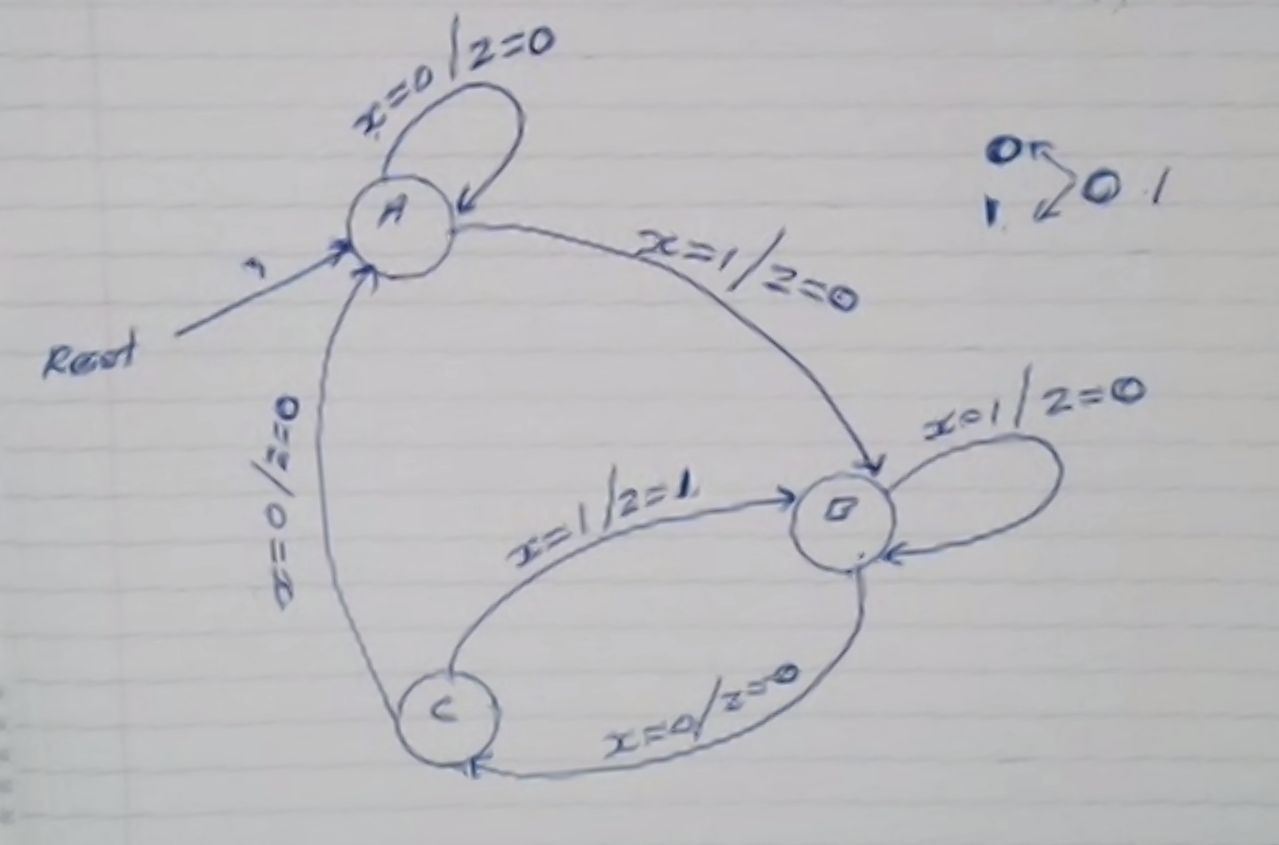 x=0/z=0
A
0
0 1
1
x=1/z=0
Reset
x=0/z=0
x=1/z=0
x=1/z=1
B
C
x=0/z=0